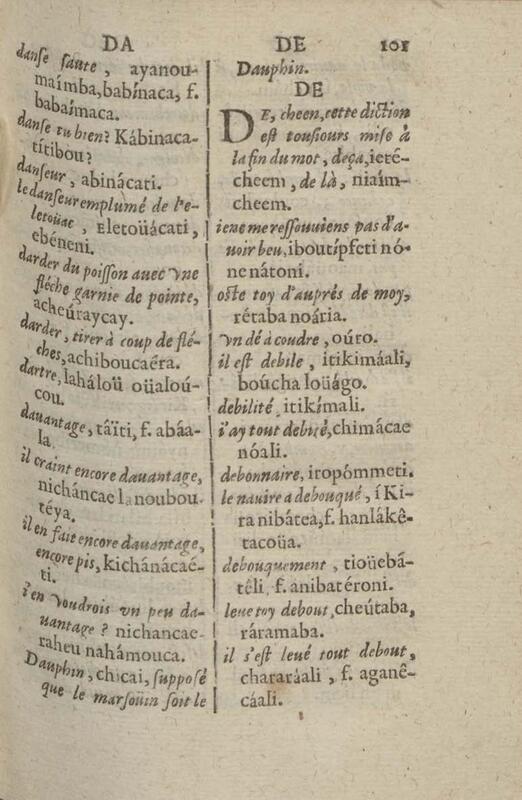 DA
danse saute, ayanou-
maímba, babínaca, f.
babaímaca.
danse tu bien? Kábinaca-
títibou?
danseur, abinácati.
le danseur emplumé de l'e-
letoüac, Eletoüácati,
ebéneni.
darder du poisson auec vne
fléche garnie de pointe,
acheúraycay.
darder, tirer à coup de flé-
ches, achiboucaéra.
dartre, laháloü oüaloú-
cou.
dauantage, táïti, f. abáa-
la.
il craint encore dauantage,
nicháncae lanoubou-
téya.
il en fait encore dauantage,
encore pis, kichánácaé-
ti.
i'en voudrois vn peu da-
uantage? nichancae-
raheu nahámouca.
Dauphin, chicai, supposé
que le marsoüin soit le
DE 101
Dauphin.
DE
DE, cheen, cette diction
est tousiours mise à
la fin du mot, deça, ieté-
cheem, de là, niaím-
cheem.
ie ne me ressouuiens pas d'a-
uoir beu, iboutípfeti nó-
ne nátoni.
oste toy d'auprés de moy,
rétaba noária.
vn dé à coudre, oúro.
il est debile, itikimáali,
boúcha loüágo.
debilité, itikímali.
i'ay tout debité, chimácae
nóali.
debonnaire, iropómmeti.
le nauire a debouqué, í Ki-
ra nibátea, f. hanlákê-
tacoüa.
debouquement, tioüebá-
têli, f. anibatéroni.
leue toy debout, cheútaba,
ráramaba.
il s'est leué tout debout,
chararáali, f. aganê-
cáali.